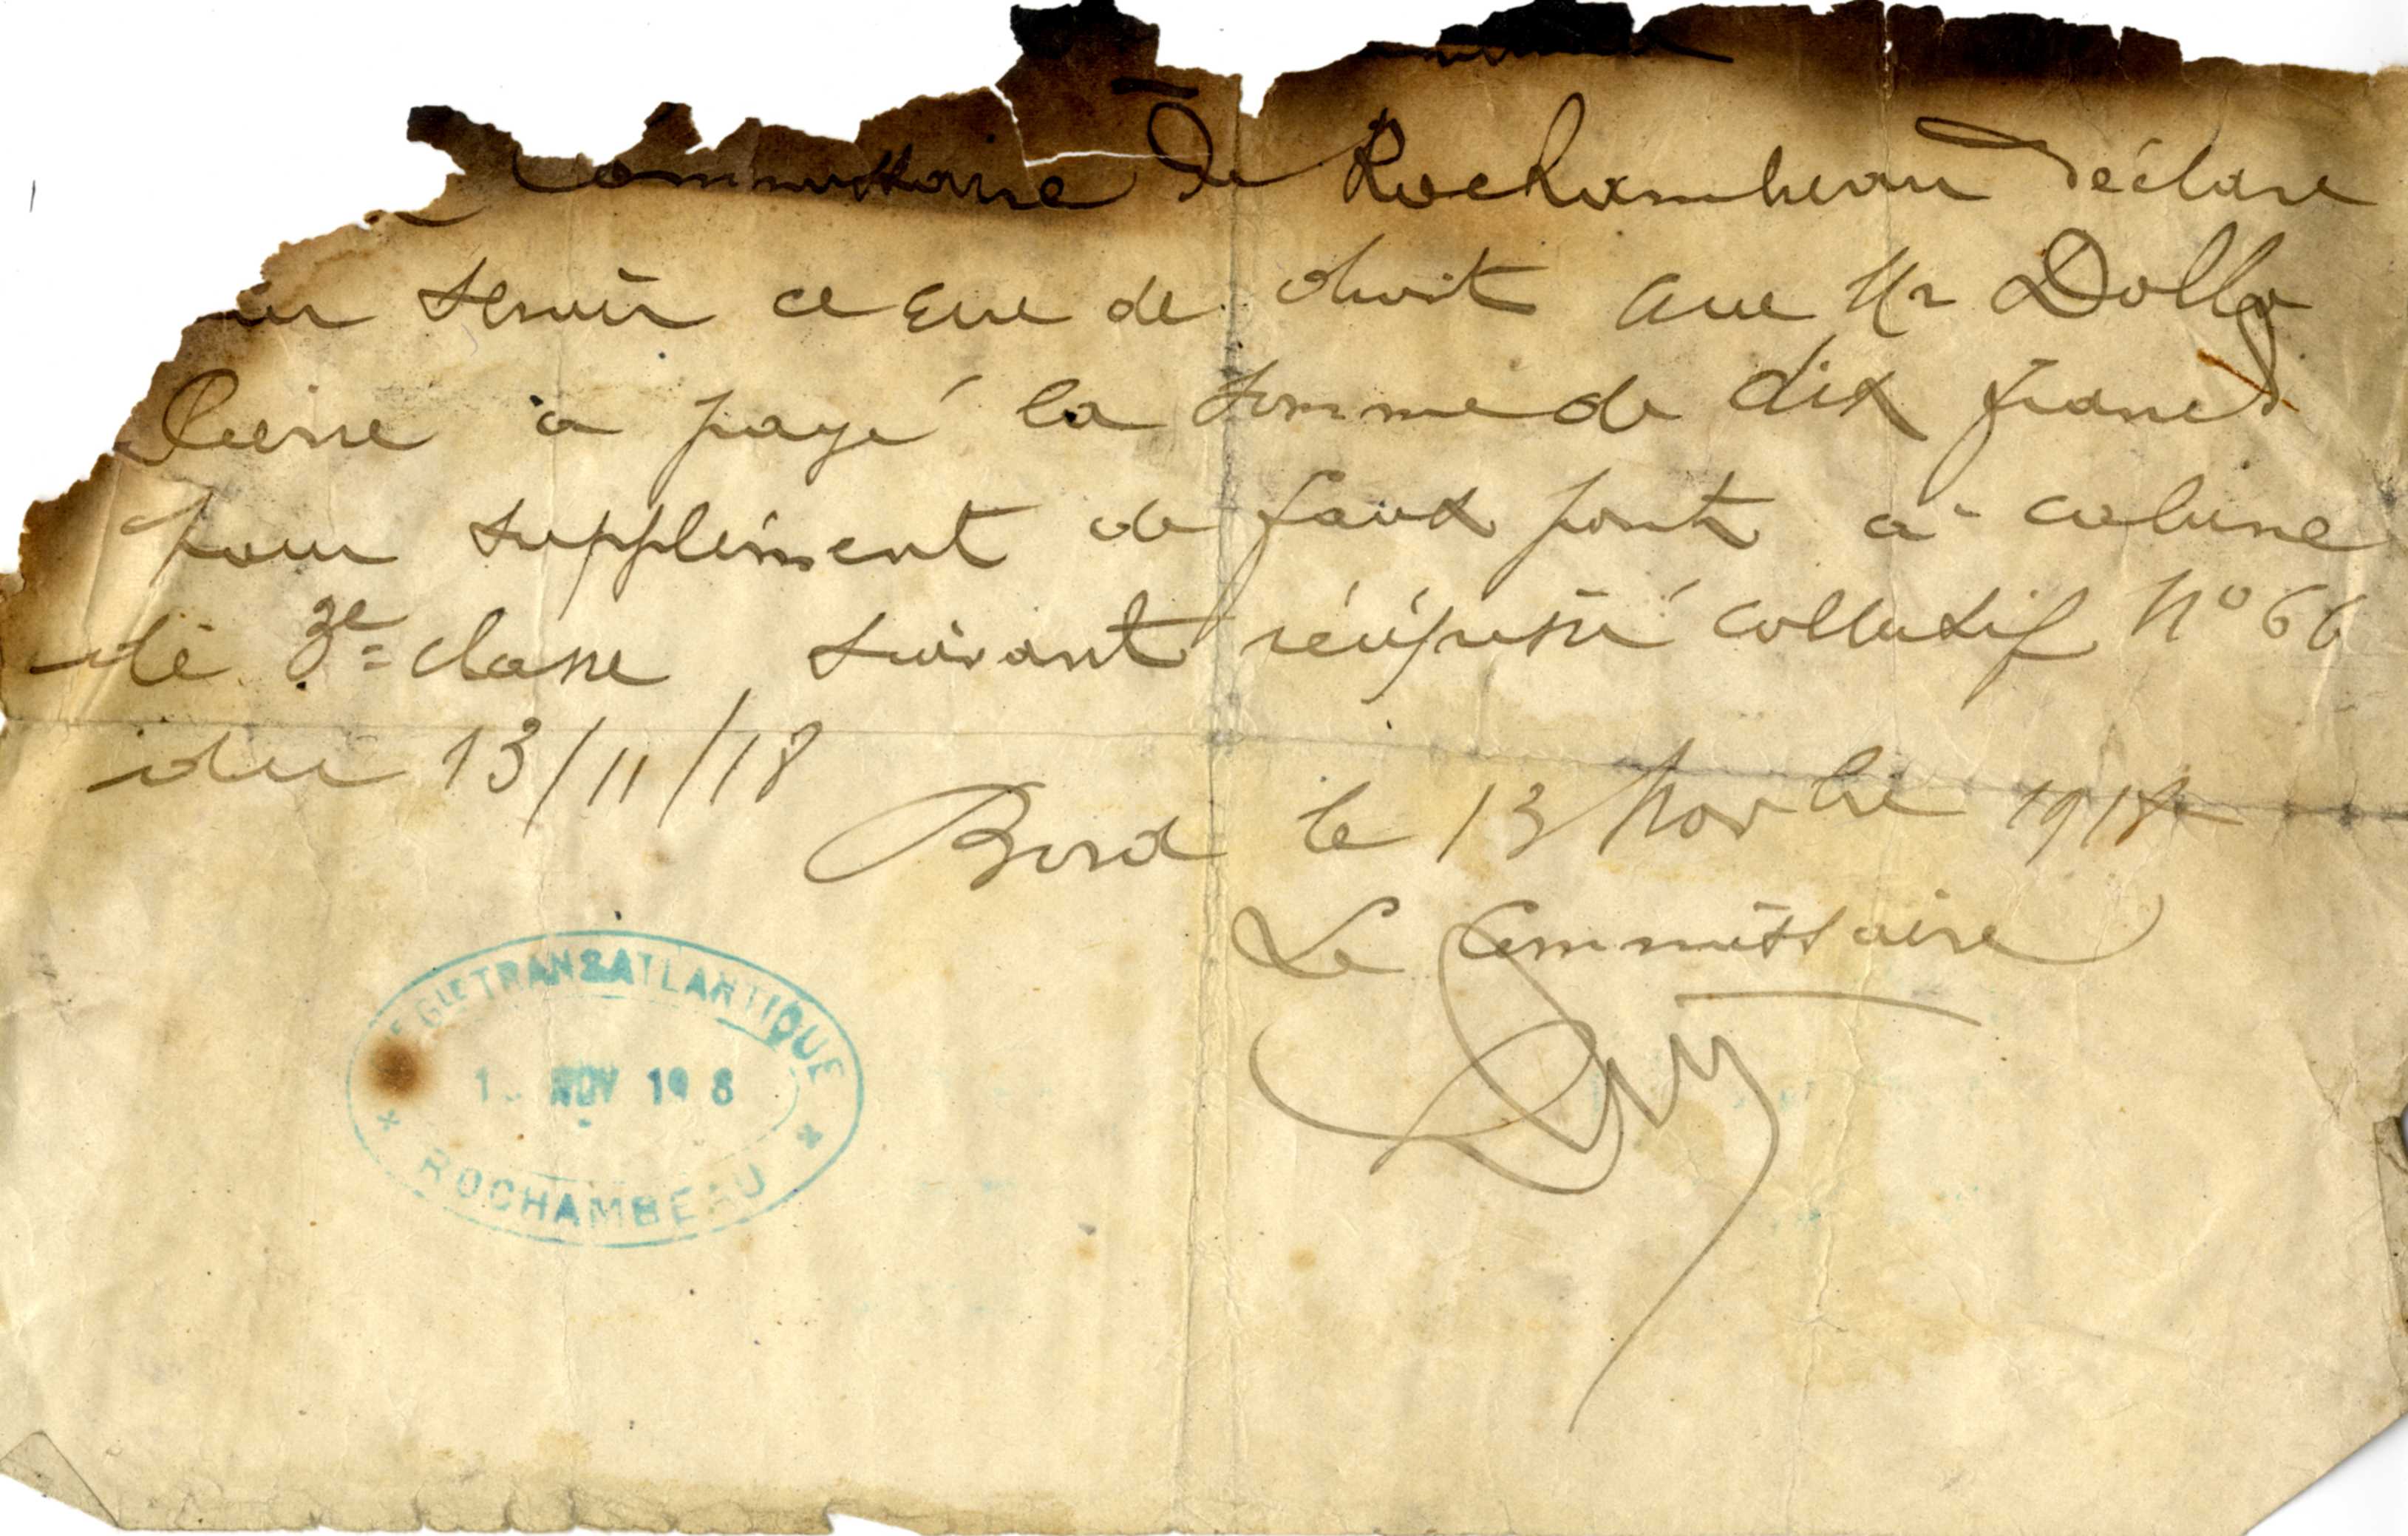 Commissaire de Rochambeau déclare
servir ce que de droit que Mr Dollo
a payé la somme de dix francs
pour supplément de faux pont à cabine
de 3e classe, suivant collectif No 66
du 13/11/18
Bord le 13 Novbre 1918
Le Commissaire
GLE TRANSATLANTIQUE
1 NOV 19 8
ROCHAMBEAU